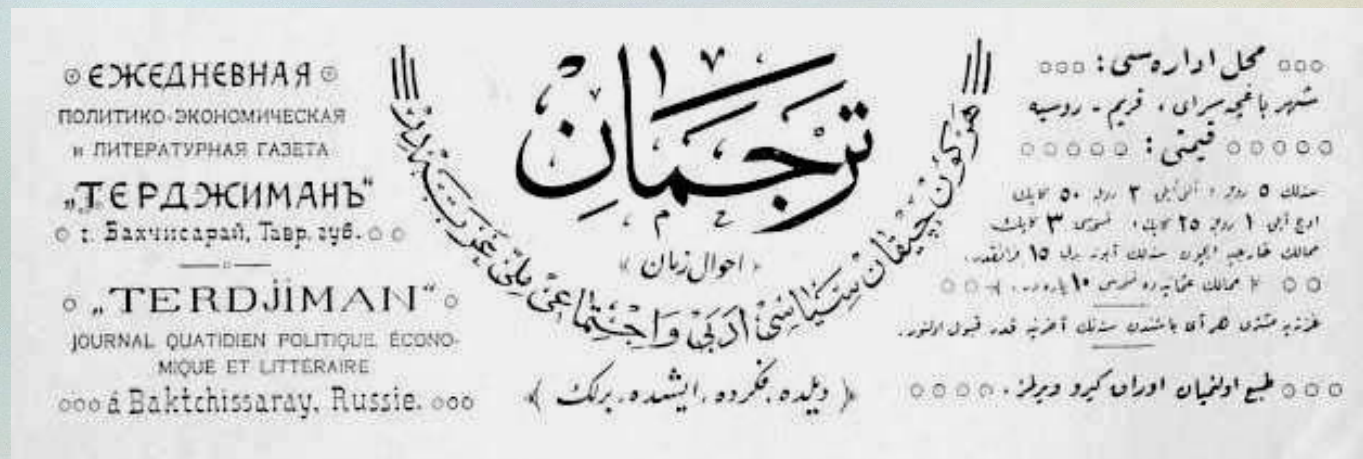 ЕЖЕДНЕВНАЯ
ПОЛИТИКО-ЭКОНОМИЧЕСКАЯ
и ЛИТЕРАТУРНАЯ ГАЗЕТА
„ТЕРДЖИМАНЪ"
г. Бахчисарай, Тавр. губ.
„TERDJiMAN"
JOURNAL QUATIDIEN POLITIQUE ÉCONO-
MIQUE ET LITTÉRAIRE
á Baktchissaray, Russie.
ترجمان
هر كون چیقان سیاسی ادبی و اجتماعی ملی غزته در
« احوال زمان »
﴿ دیلده، فكرده، ایشده، برلك ﴾
محل اداره سی :
شهر باغچه سرای ، قریم - روسیه
قیمتی :
سنه لك ٥ روبل ، آلتی آیلق ٣ روبل ٥٠ كاپك
اوچ آیلق ١ روبل ٢٥ كاپك، نسخه سی ٣ كاپك
ممالك خارجیه ایچون سنه لك آبونه بدلی ١٥ فرانقدر.
ممالك عثمانیه ده نسخه سی ١٠ پاره در.
هر آی باشندن سنه لك آخرینه قدر قبول اولنور.
طبع اولنمیان اوراق كیرو ویرلمز.